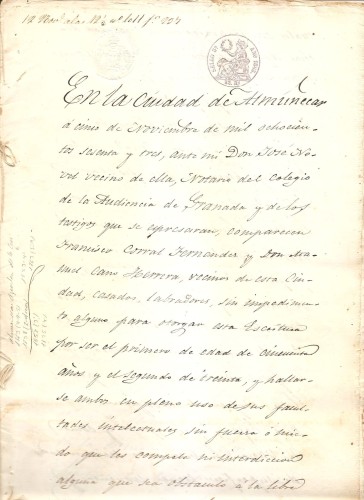 En la ciudad de Almuñecar
á cinco de Noviembre de mil ochocien-
tos sesenta y tres, ante mi Don José No-
vel vecino de ella, Notario del Colegio
de la Audiencia de Granada y de los
testigos que se espresaran, comparecen
Francisco Corral Fernandez y Don Ma-
nuel Cano Herrera, vecinos de esta Ciu-
dad, casados, labradores, sin impedimen-
to alguno para otorgar esta Escritura
por ser el primero de edad de cincuenta
años y el segundo de treinta, y hallar-
se ambos en pleno uso de sus facul-
tades intelectuales sin fuerza ó mie-
do que les compela ni interdiccion
alguna que sea obstaculo á la libre